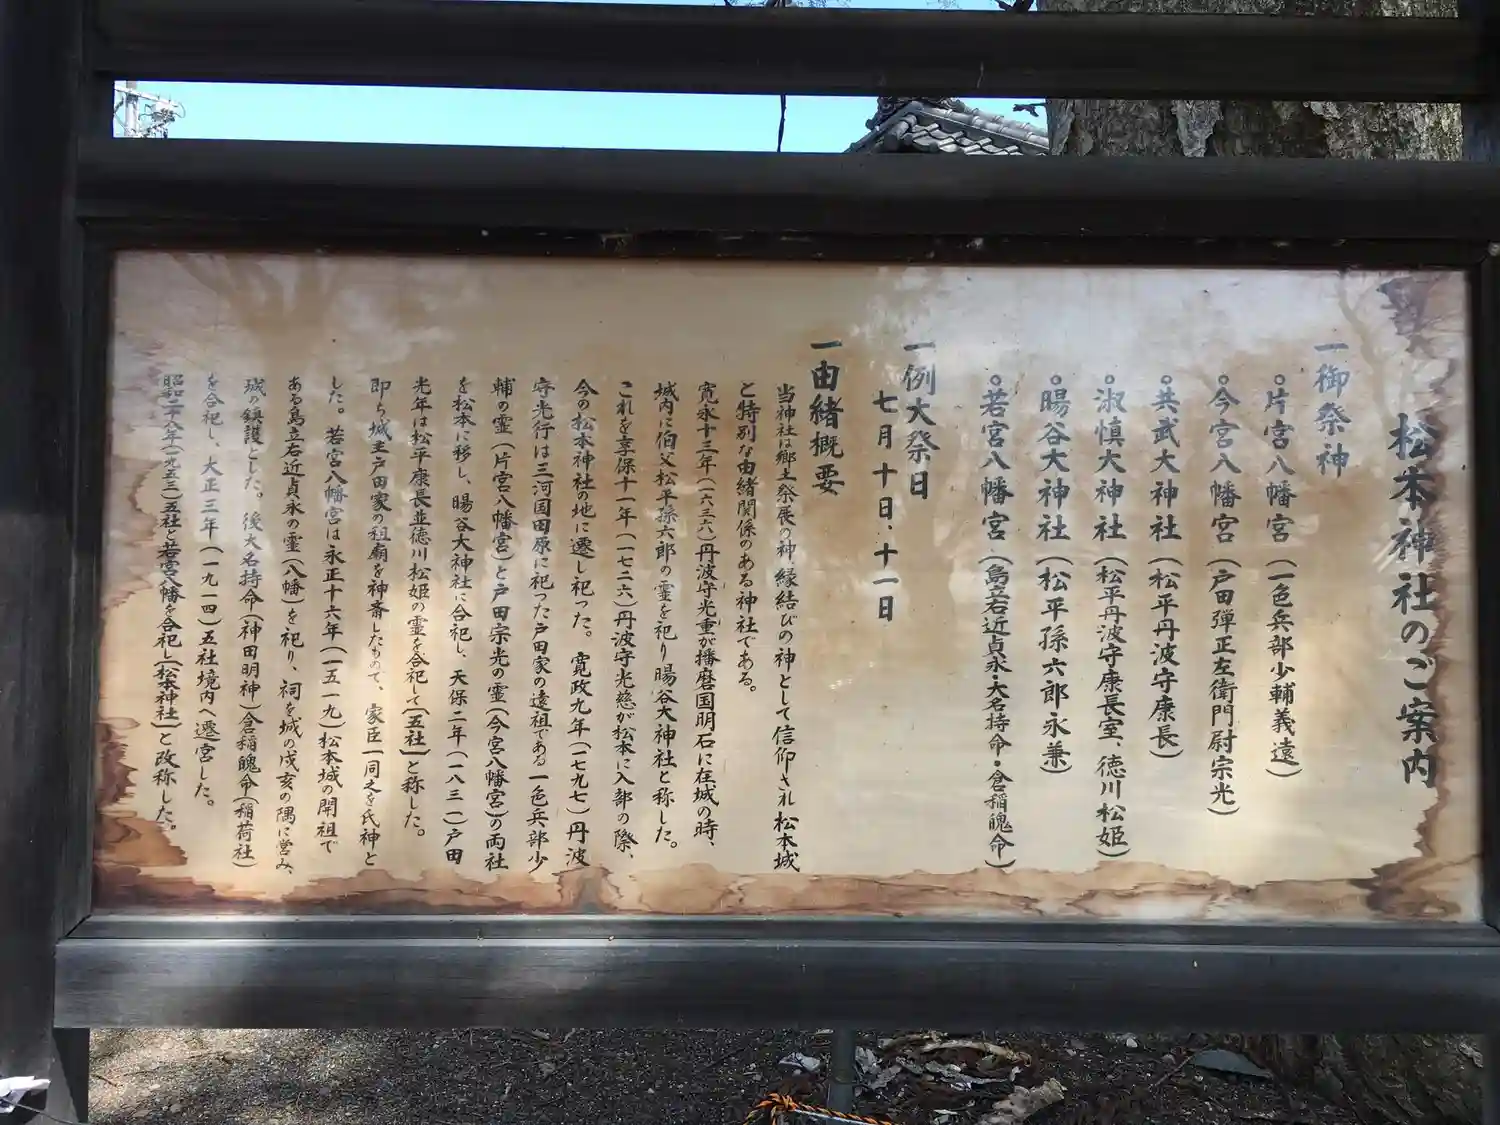 松本神社のご案内
一御祭神
○片宮八幡宮(一色兵部少輔義遠)
○今宮八幡宮(戸田弾正左衛門尉宗光)
○共武大神社(松平丹波守康長)
○淑慎大神社(松平丹波守康長室、徳川松姫)
○暘谷大神社(松平孫六郎永兼)
○若宮八幡宮(島立右近貞永・大名持命・倉稲魄命)
一例大祭日
七月十日、十一日
一由緒概要
当神社は郷土発展の神、縁結びの神として信仰され松本城
と特別な由緒関係のある神社である。
寛永十三年(一六三六)丹波守光重が播磨国明石に在城の時、
城内に伯父松平孫六郎の霊を祀り暘谷大神社と称した。
これを享保十一年(一七二六)丹波守光慈が松本に入部の際、
今の松本神社の地に遷し祀った。寛政九年(一七九七)丹波
守光行は三河国田原に祀った戸田家の遠祖である一色兵部少
輔の霊(片宮八幡宮)と戸田宗光の霊(今宮八幡宮)の両社
を松本に移し、暘谷大神社に合祀し、天保二年(一八三一)戸田
光年は松平康長並徳川松姫の霊を合祀して[五社]と称した。
即ち城主戸田家の祖廟を神斎したもので、家臣一同之を氏神と
した。若宮八幡宮は永正十六年(一五一九)松本城の開祖で
ある島立右近貞永の霊(八幡)を祀り、祠を城の戌亥の隅に営み、
城の鎮護とした。後大名持命(神田明神)倉稲魄命(稲荷社)
を合祀し、大正三年(一九一四)五社境内へ遷宮した。
昭和二十八年(一九五三)五社と若宮八幡を合祀し[松本神社]と改称した。